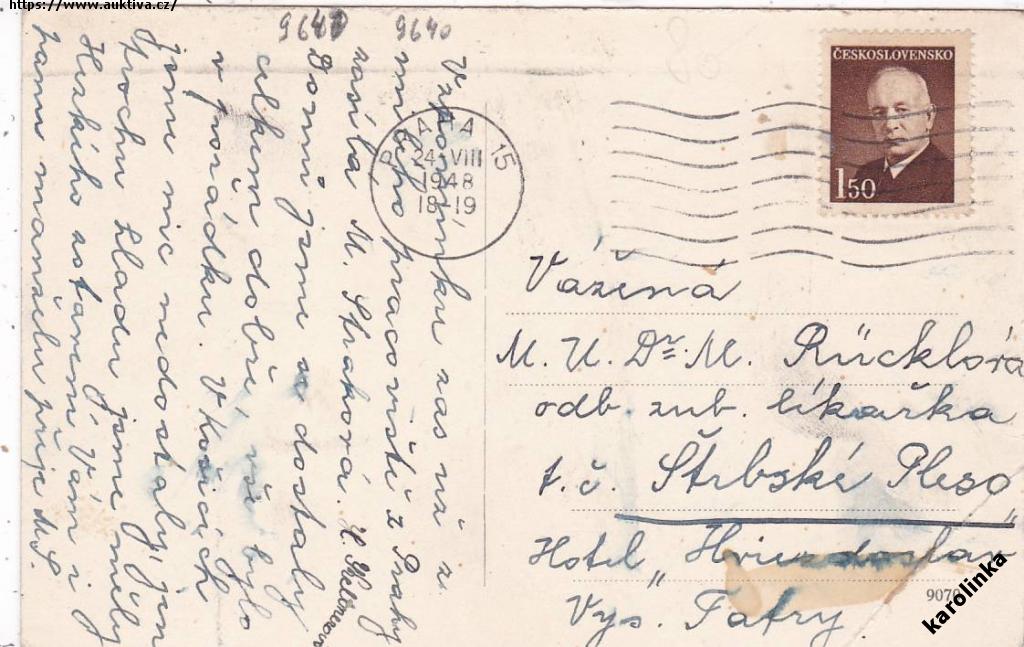 https://www.auktiva.cz/
9640 9640
Vzpomínku zas už z
mého pracoviště z Prahy
zasílá M. Straková.
Domů jsme se dostaly
celkem dobře, vše bylo
v pořádku. V Košicích
jsme nic nedostaly, jen
trochu hladu jsme měly
Hezkého ostatní Vám i
panu manželu přeje M.S.
PRAHA 15
24-VIII
1948
18-19
ČESKOSLOVENSKO
1 50
Vážená
M. U. Dr. M. Rücklová
odb. zub. lékařka
t. č. Štrbské Pleso
Hotel „Hviezdoslav"
Vys. Tatry
9070
karolinka